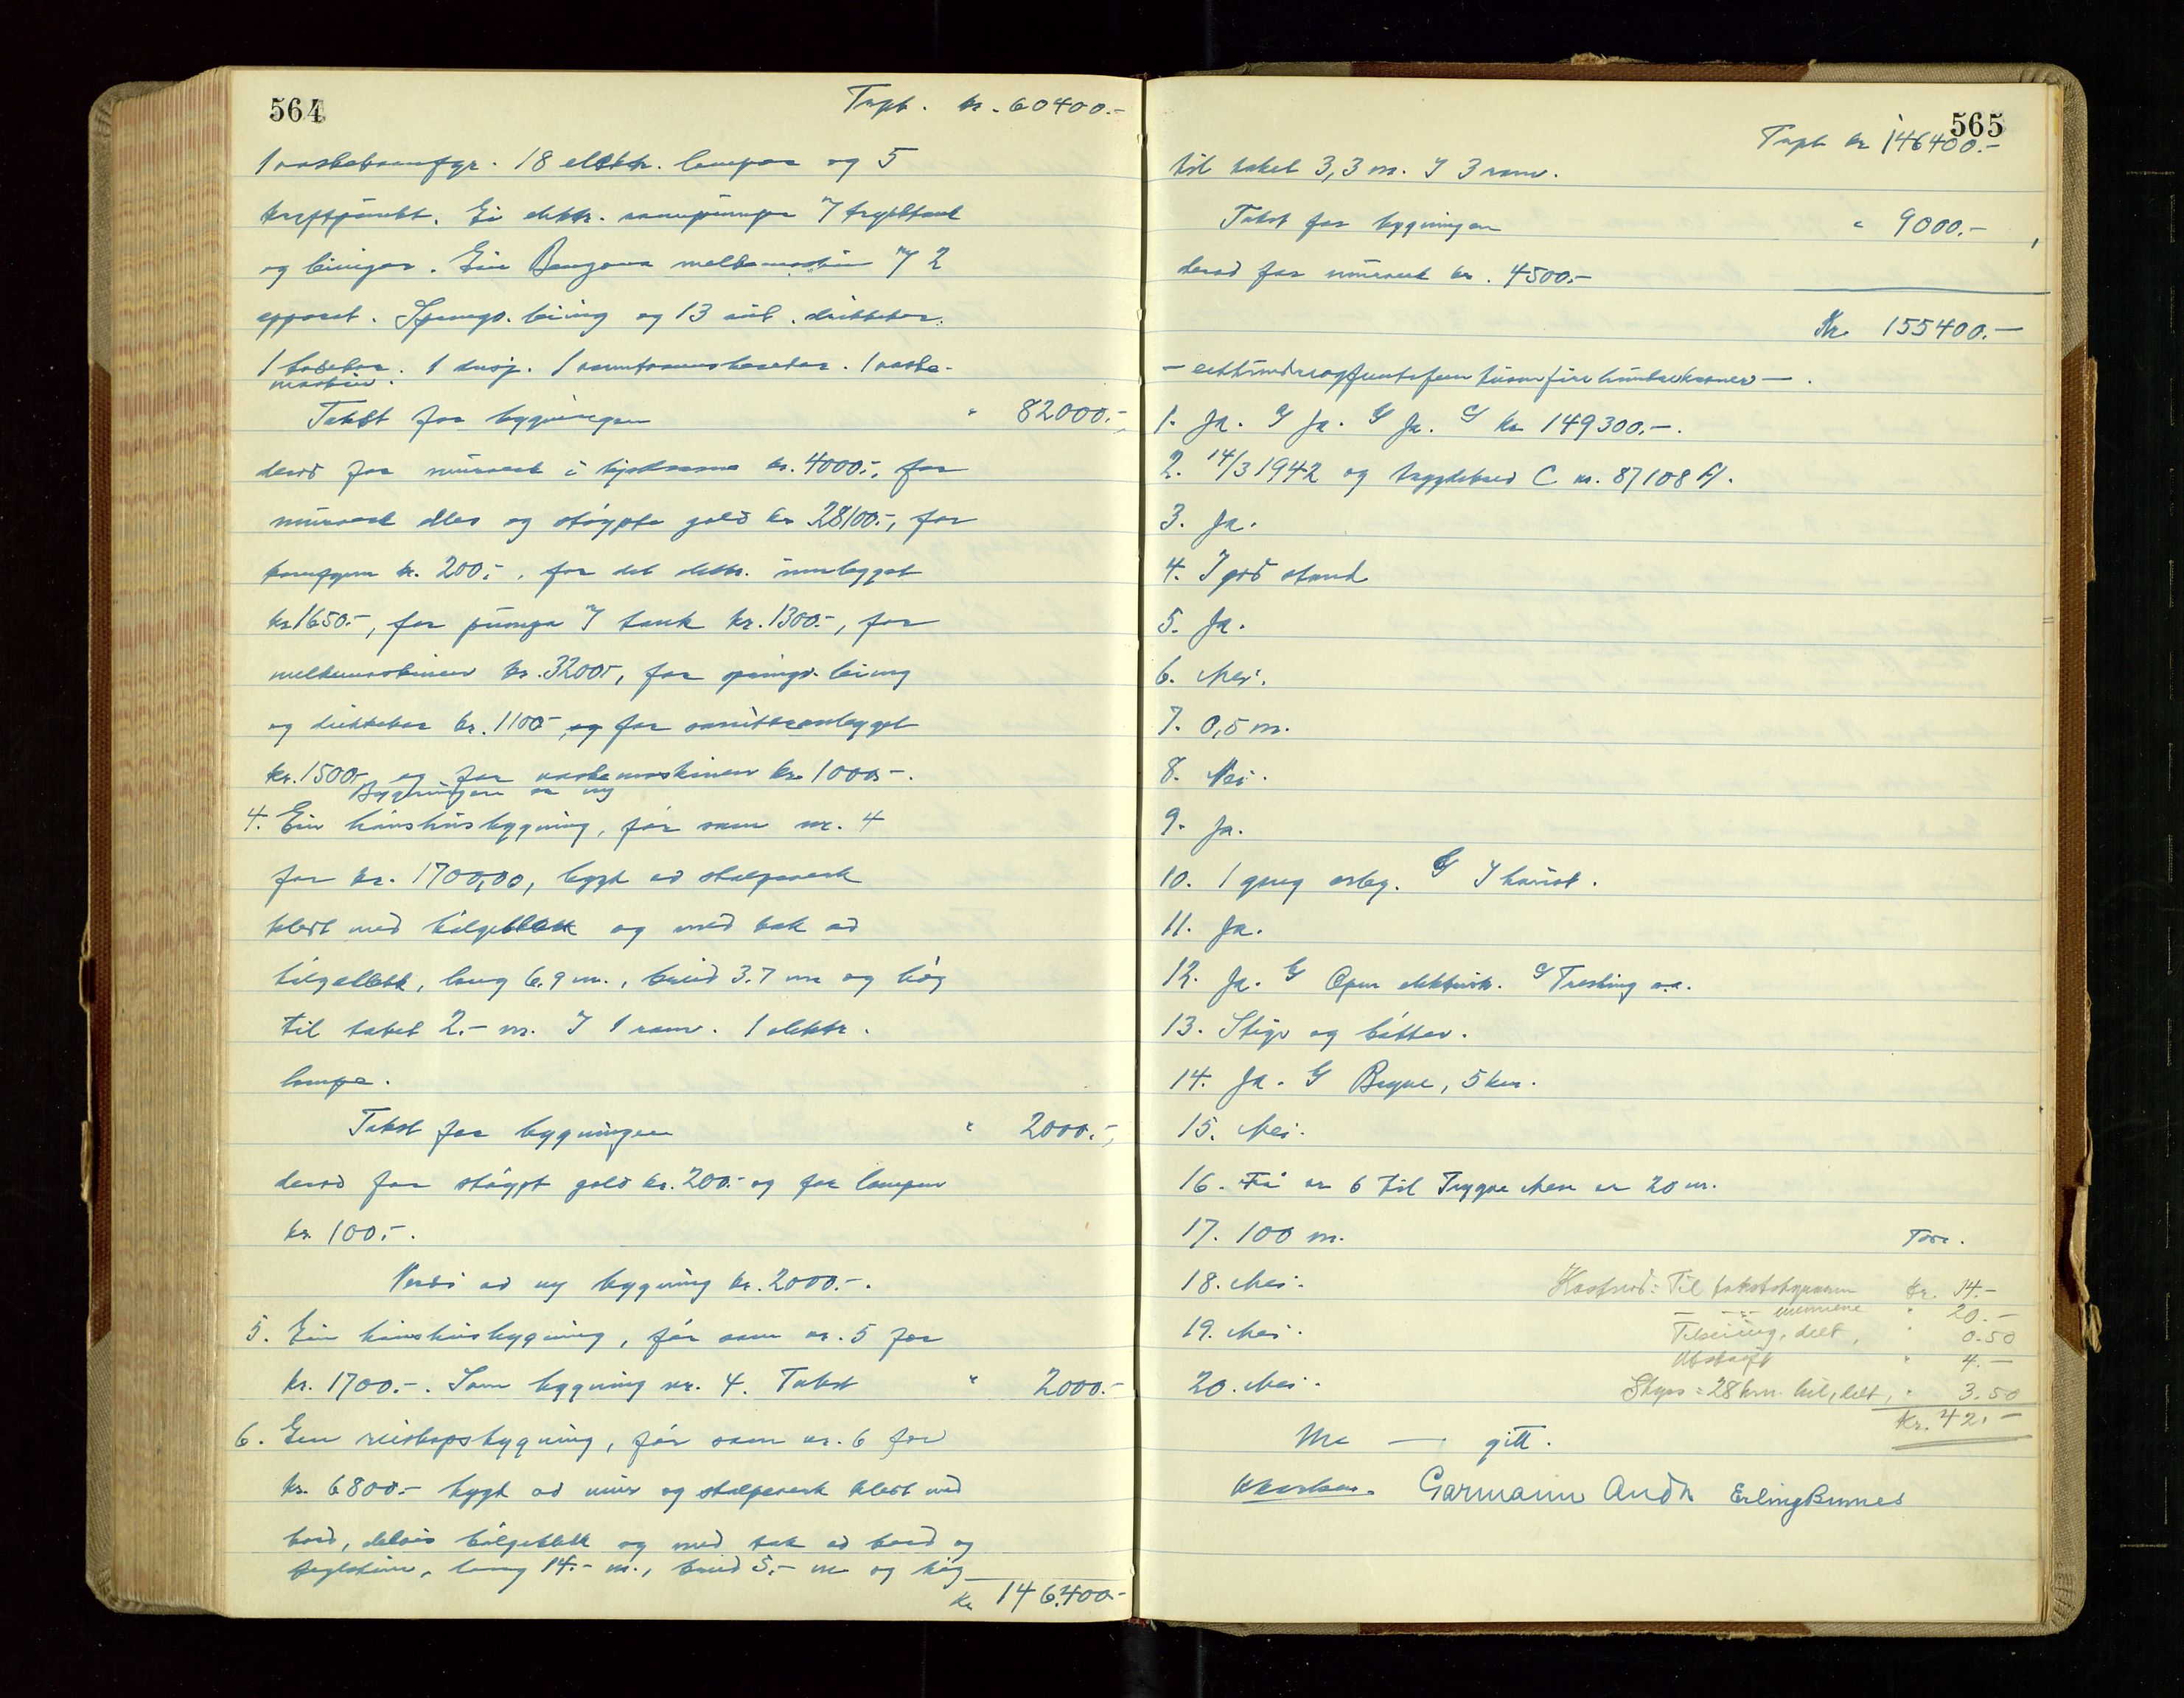 564
Trpt. kr. 60400.-
1 vaskekomfyr. 18 elektr. lampor og 5
kraftpunkt. Ei elektr. vasspumpa m/ trykktank
og leiingar. Ein Benzona melkemaskin m/ 2
apparat. Springv. leiing og 13 aut. drikkekar.
1 badekar. 1 dusj. 1 varmtvannsbereder. 1 vaske-
maskin.
Takst for bygningen " 82000.-
derav for murverk i kjellerane kr. 4000.-, for
murverk elles og støypte golv kr 28100.-, for
komfyren kr. 200.-, for det elektr. innlegget
kr 1650.-, for pumpa m/ tank kr. 1300.-, for
melkemaskinen kr. 3200.-, for springv. leiing
og drikkekar kr. 1100.- og for sanitæranlegget
kr. 1500.- og for vaskemaskinen kr. 1000.-.
Bygningen er ny
4. Ein hønshusbygning, før som nr. 4
for kr. 1700,00, bygt av stolpeverk
kledt med bølgeblekk og med tak av
bølgeblekk, lang 6.9 m., breid 3.7 m og høg
til taket 2.- m. I 1 rom. 1 elektr.
lampe.
Takst for bygningen " 2000.-
derav for støypt golv kr. 200.- og for lampen
kr. 100.-.
Verdi av ny bygning kr. 2000.-.
5. Ein hønshusbygning, før som nr. 5 for
kr. 1700.-. Som bygning nr. 4. Takst " 2000.-
6. Ein reiskapsbygning, før som nr. 6 for
kr. 6800.- bygt av mur og stolpeverk kledt med
bord, delvis bølgeblekk og med tak av bord og
teglstein, lang 14.- m., breid 5.- m og høg
Kr 146.400.-
565
Trpt kr 146400.-
til taket 3,3 m. I 3 rom.
Takst for bygningen " 9000.-
derav for murverk kr. 4500.-
Kr. 155400.-
- eitthundreogfemtifemtusenfirehundrekroner -.
1. Ja. G Ja. G Ja. G kr 149300.-.
2. 14/3 1942 og trygdebrev C nr. 87108 A.
3. Ja.
4. I god stand
5. Ja.
6. Nei.
7. 0,5 m.
8. Nei.
9. Ja.
10. 1 gong årleg. G I haust.
11. Ja.
12. Ja. G Open elektrisk. G Tresking o.a.
13. Stige og bøtter.
14. Ja. G Bryne, 5 km.
15. Nei.
16. Frå nr 6 til Trygve Nese er 20 m.
17. 100 m.
18. Nei.
19. Nei.
20. Nei.
Tore.
Kostnad: Til takstskjønnen kr. 14.-
— " — mennene " 20.-
Tilseiing, delt, " 0.50
Utskrift " 4.-
Skyss: 28 km. bil, delt, " 3.50
Kr. 42.-
Ma — gitt.
Garmann Anda Erling Bunes